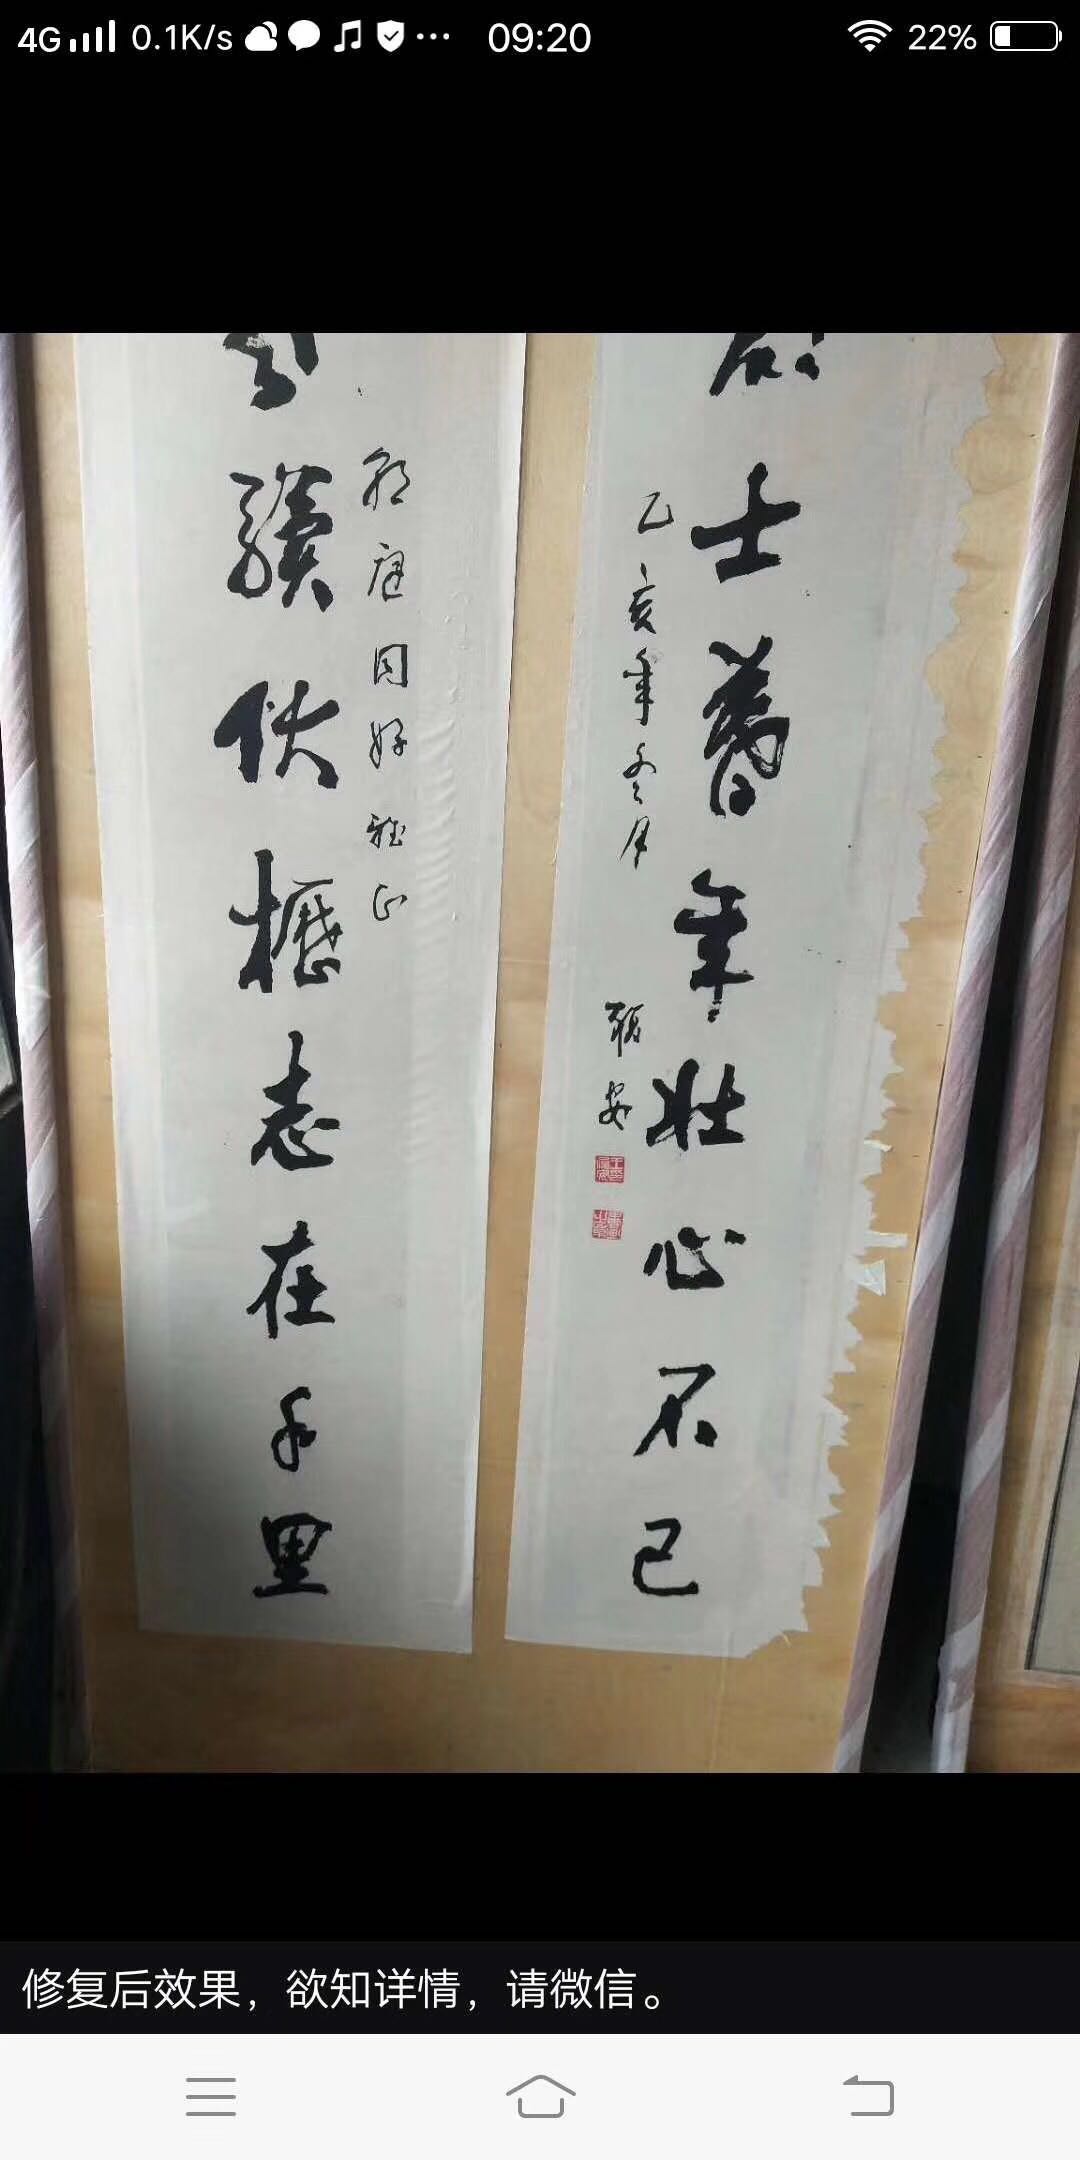 4G 0.1K/s 09:20 22%
士暮年壮心不已
乙亥年冬月
骥伏枥志在千里
庭同好雅正
修复后效果，欲知详情，请微信。